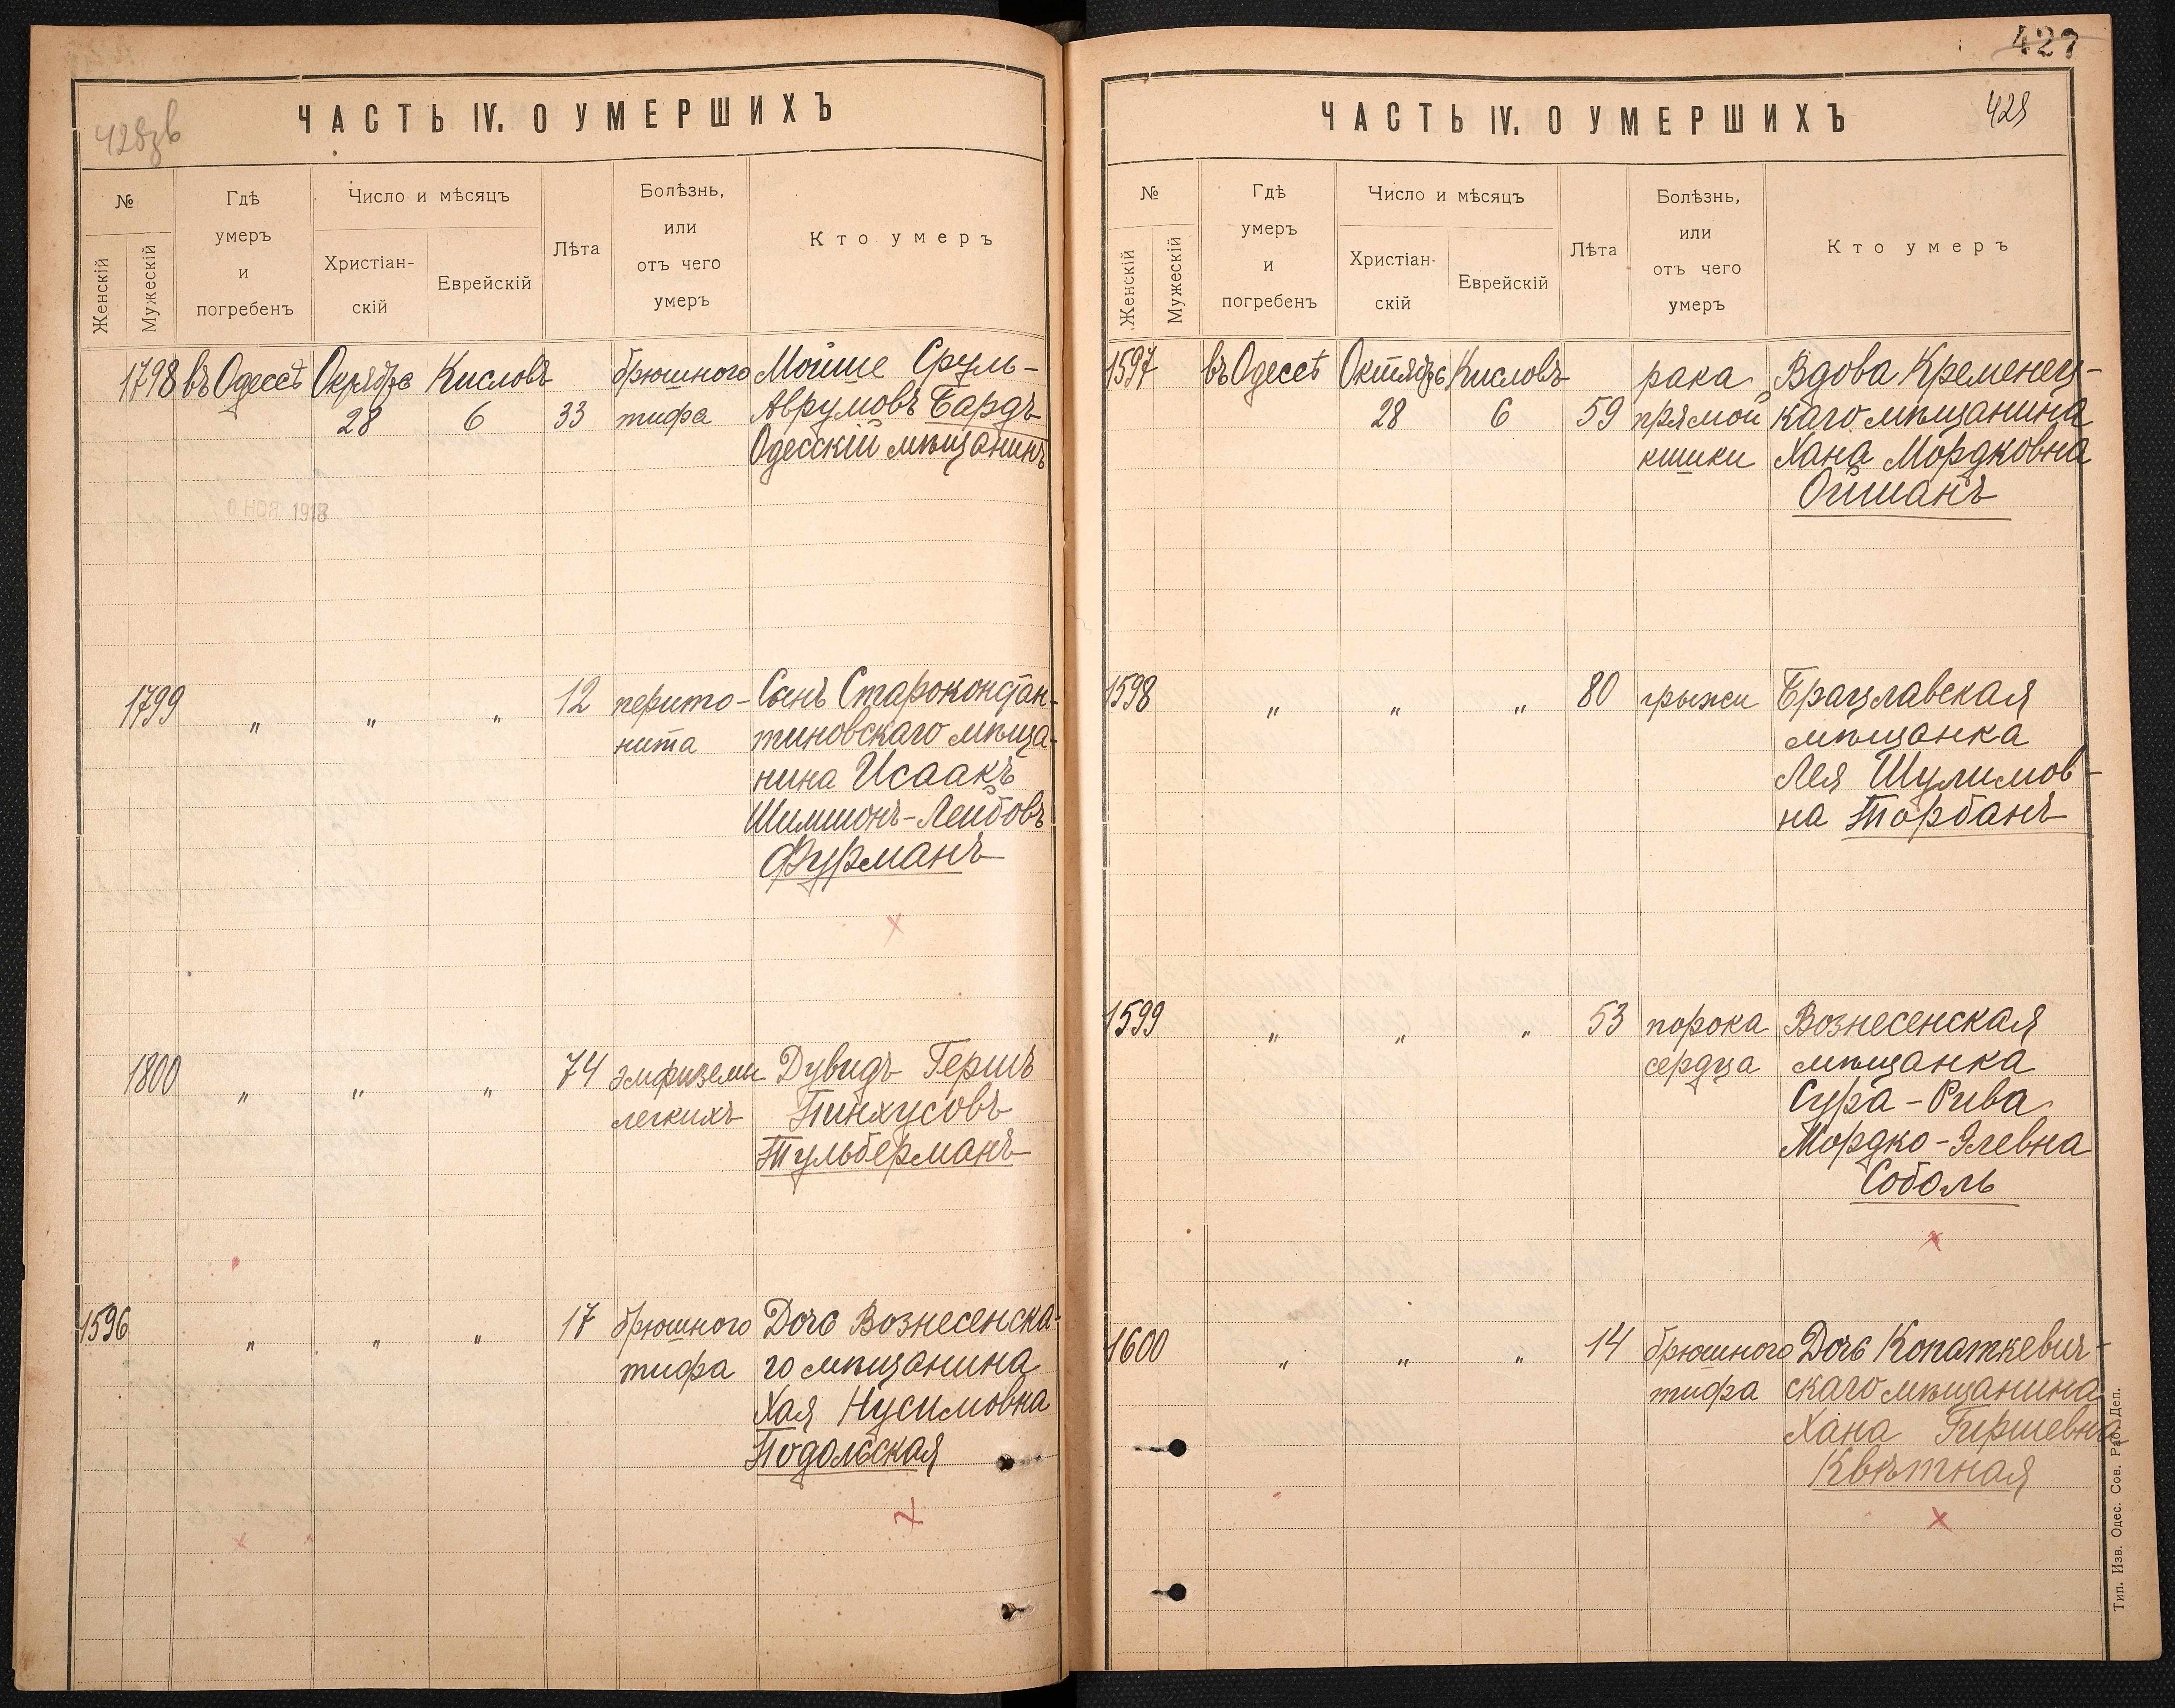 428зв
ЧАСТЬ IV. О УМЕРШИХЪ
№
Женскій
Мужескій
Гдѣ
умеръ
и
погребенъ
Число и мѣсяцъ
Христіан-
скій
Еврейскій
Лѣта
Болѣзнь,
или
отъ чего
умеръ
Кто умеръ
1798 въ Одессѣ Кисловъ брюшного Мойше Сруль-
28 6 33 тифа Аврумовъ Бардъ
Одесскій мѣщанинъ
НОЯ 1918
1799 " " " 12 перито- Сынъ Староконстан-
нита тиновскаго мѣща-
нина Исаакъ
Шимшонъ-Лейбовъ
Фурманъ
1800 " " " 74 эмфиземы Дувидъ Гершъ
легкихъ Пинхусовъ
Тульберманъ
1596 " " " 17 брюшного Дочь Вознесенска-
тифа го мѣщанина
Хая Нусимовна
Подольская
427
429
ЧАСТЬ IV. О УМЕРШИХЪ
№
Женскій
Мужескій
Гдѣ
умеръ
и
погребенъ
Число и мѣсяцъ
Христіан-
скій
Еврейскій
Лѣта
Болѣзнь,
или
отъ чего
умеръ
Кто умеръ
1597 въ Одессѣ Октябрь Кисловъ рака Вдова Кременец-
28 6 59 прямой каго мѣщанина
кишки Хана Мордковна
Ойшанъ
1598 " " " 80 грыжи Брацлавская
мѣщанка
Лея Шулимов-
на Торбанъ
1599 " " " 53 порока Вознесенская
сердца мѣщанка
Сура-Рива
Мордко-Элевна
Соболь
1600 " " " 14 брюшного Дочь Копаткевич-
тифа скаго мѣщанина
Хана Гершевна
Квѣтная
Тип. Изв. Одес. Сов. Раб. Деп.